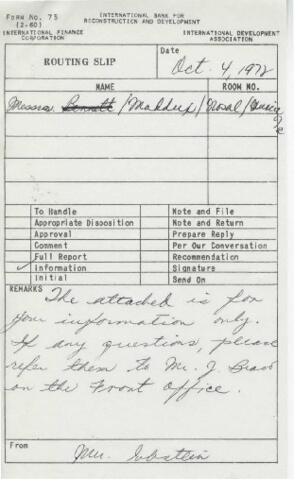 FORM No. 75
(2-60)
INTERNATIONAL BANK FOR
RECONSTRUCTION AND DEVELOPMENT
INTERNATIONAL FINANCE
CORPORATION
INTERNATIONAL DEVELOPMENT
ASSOCIATION
ROUTING SLIP
Date
Oct. 4, 1972
NAME
ROOM NO.
Messrs. Bennett / Maddux /
To Handle
Note and File
Appropriate Disposition
Note and Return
Approval
Prepare Reply
Comment
Per Our Conversation
Full Report
Recommendation
Information
Signature
Initial
Send On
REMARKS
The attached is for
your information only.
If any questions, please
refer them to Mr. J.
on the Front Office.
From
Mr. Ebstein